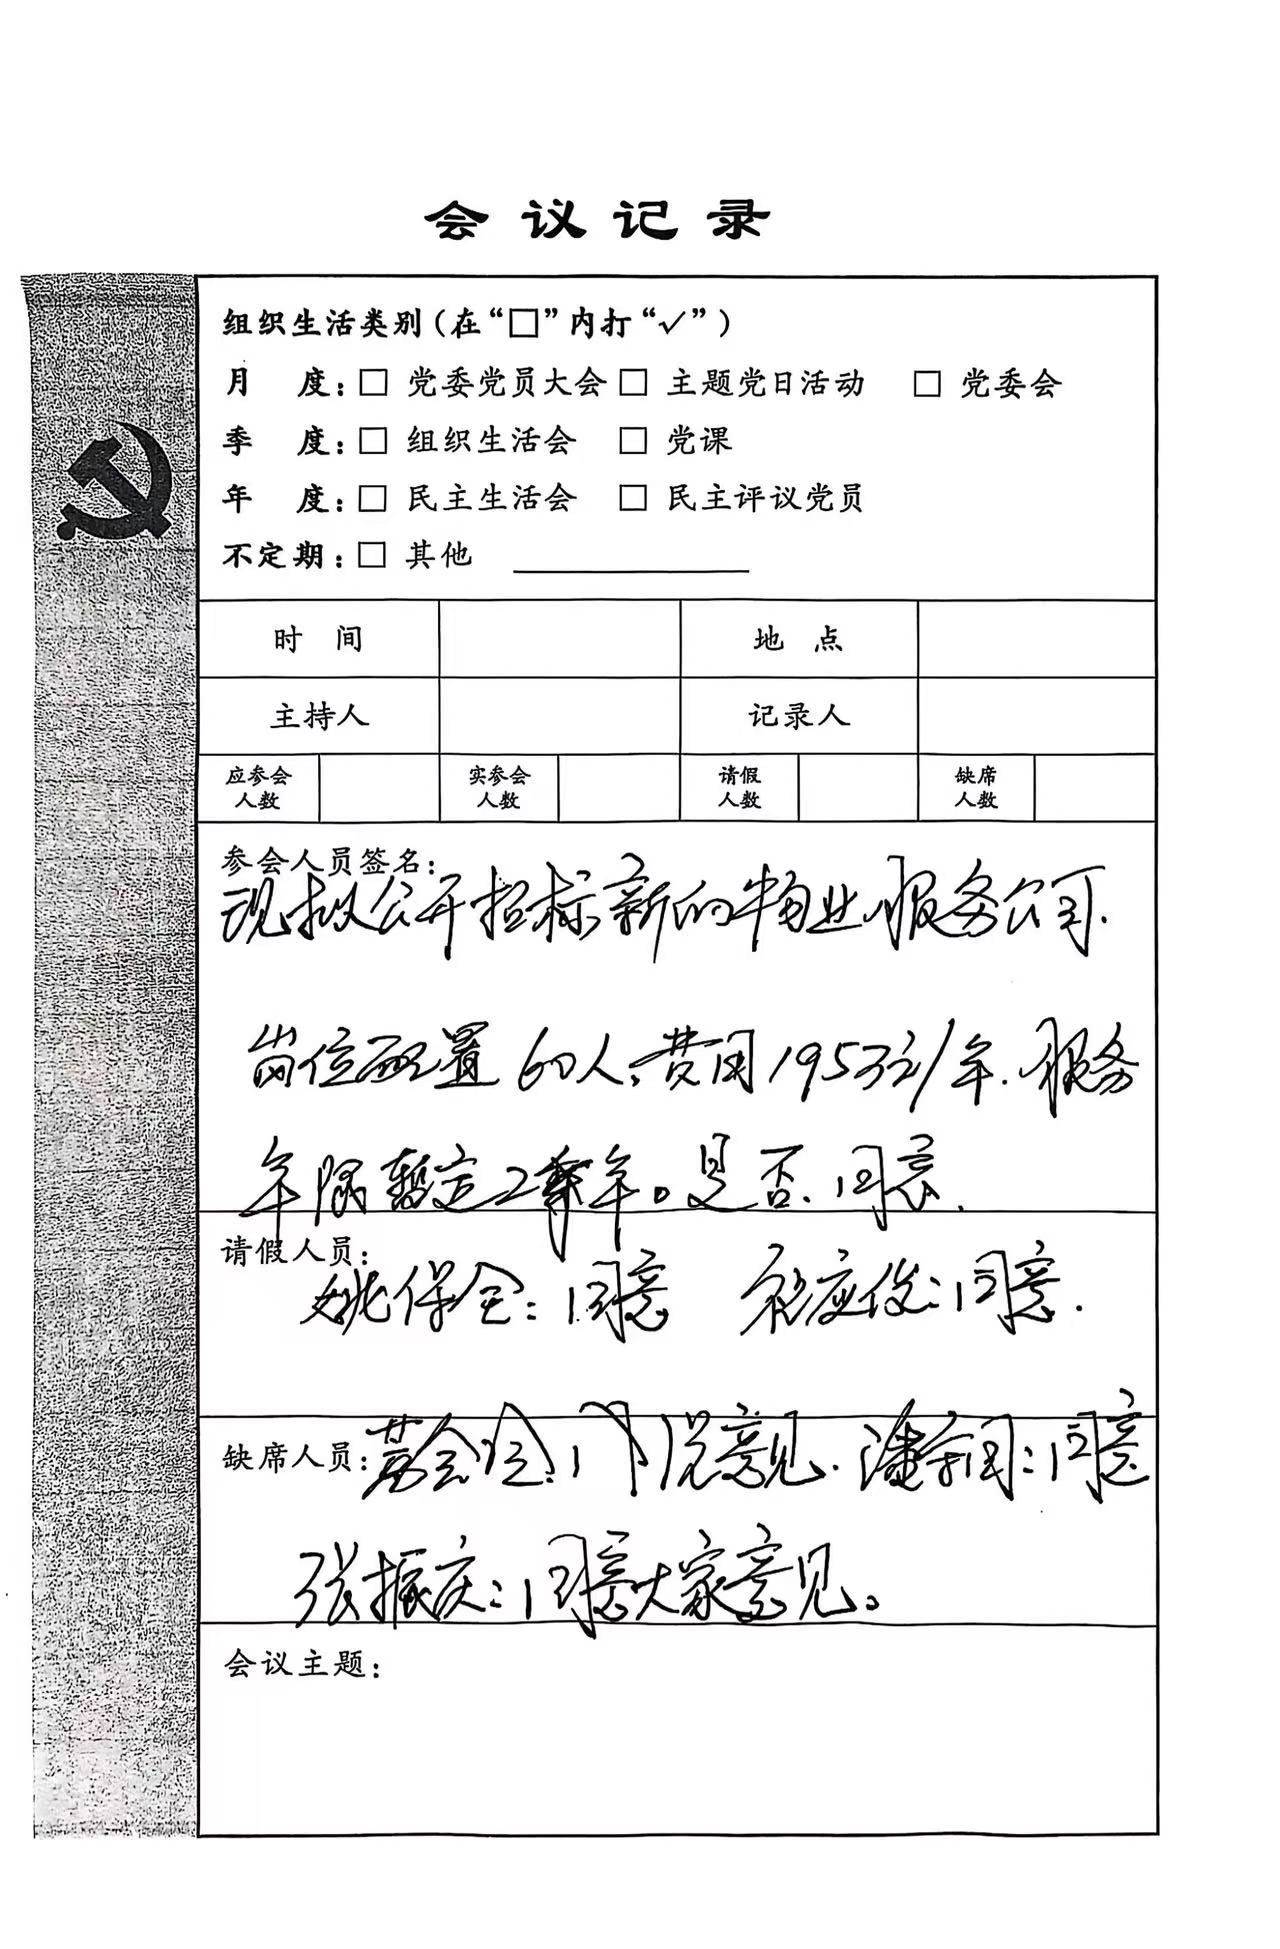 会议记录
组织生活类别(在“□”内打“✓”)
月 度:□ 党委党员大会 □ 主题党日活动 □ 党委会
季 度:□ 组织生活会 □ 党课
年 度:□ 民主生活会 □ 民主评议党员
不定期:□ 其他
时 间 地 点
主持人 记录人
应参会人数 实参会人数 请假人数 缺席人数
参会人员签名:
现拟公开招标新的物业服务公司.
岗位配置60人,费用195万元/年.服务
年限暂定2年。是否同意.
请假人员:
姚保全:同意 应俊:同意.
缺席人员:
会:同意见.潘:同意
张振庆:同意大家意见。
会议主题: